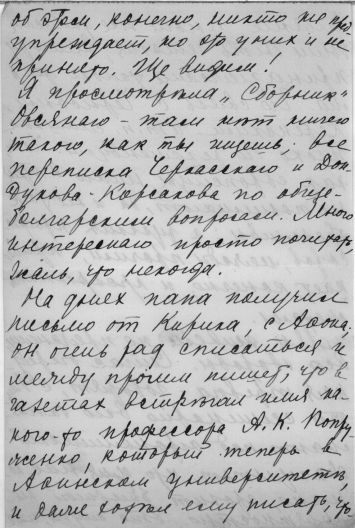 об этом, конечно, никто не пре-
упреждает, но это у них и не
принято. Ще видим!
Я просмотрела „Сборник"
Овсянаго – там нет ничего
такого, как ты пишешь, все
переписка Черкасскаго и Дон-
дукова-Корсакова по обще-
болгарским вопросам. Много
интереснаго просто почитать,
жаль, что некогда.
На днях папа получил
письмо от Кирика, с Афона,
он очень рад списаться и
между прочим пишет, что в
газетах встречал имя ка-
кого-то профессора А. К. Попру-
женко, который теперь в
Афинском университете,
и даже хотел ему писать, что